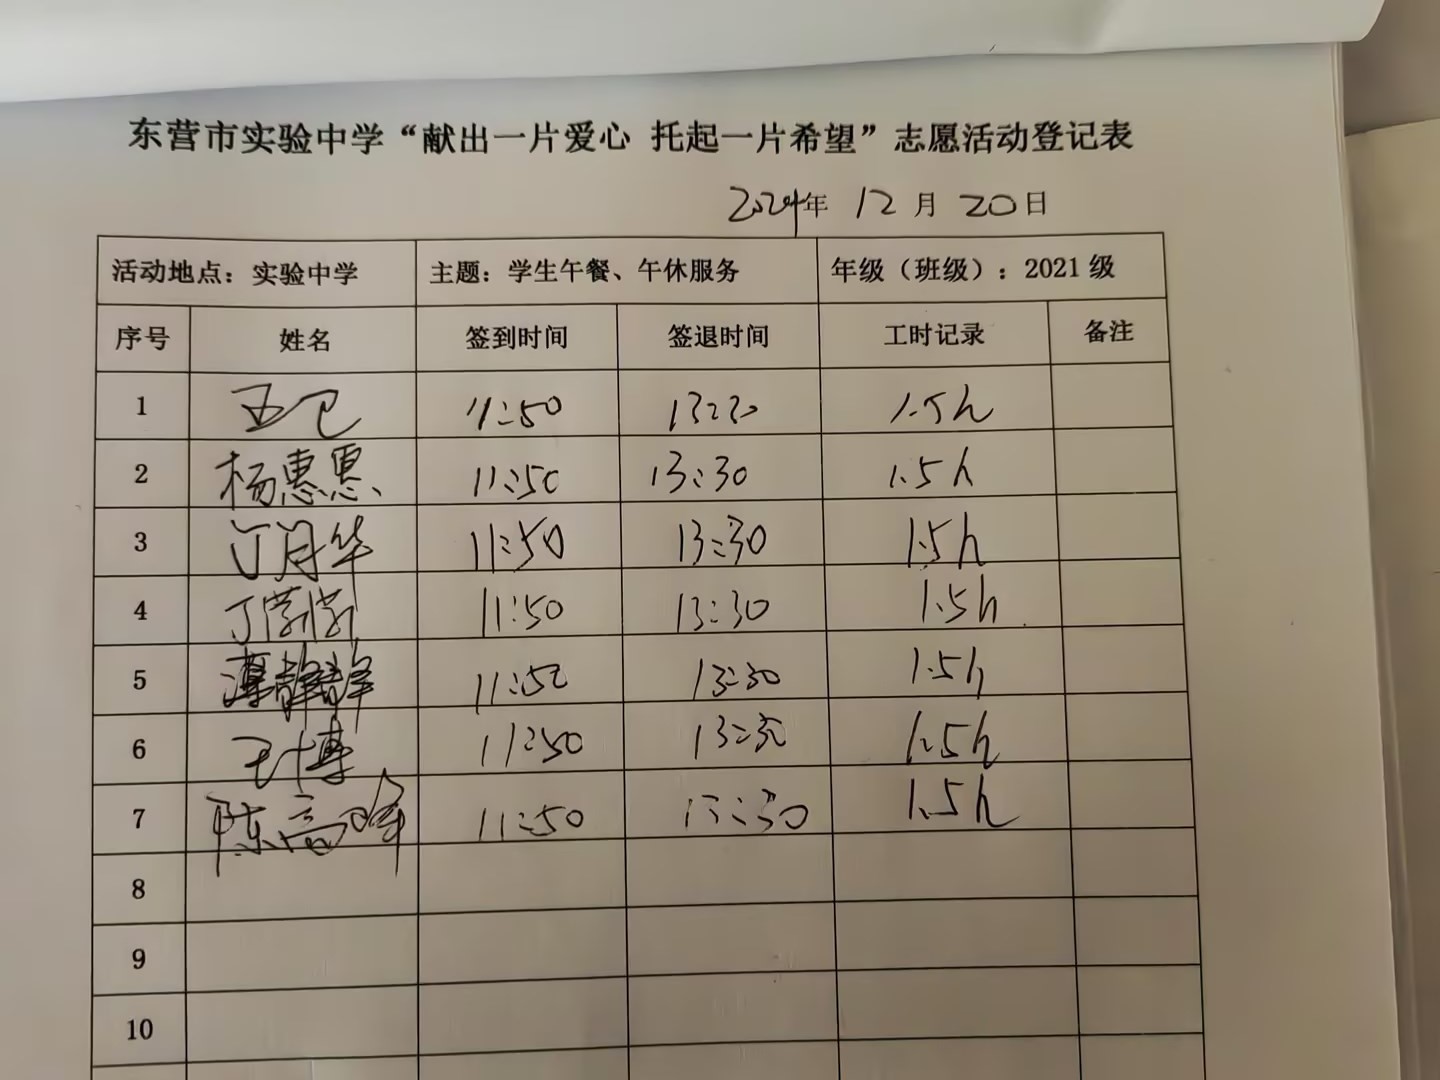 东营市实验中学“献出一片爱心 托起一片希望”志愿活动登记表
2024年 12月 20日
活动地点：实验中学 主题：学生午餐、午休服务 年级（班级）：2021级
序号 姓名 签到时间 签退时间 工时记录 备注
1 11:50 13:30 1.5h
2 杨惠惠 11:50 13:30 1.5h
3 丁月华 11:50 13:30 1.5h
4 丁莹莹 11:50 13:30 1.5h
5 薄静静 11:50 13:30 1.5h
6 王博 11:50 13:30 1.5h
7 陈高峰 11:50 13:30 1.5h
8
9
10